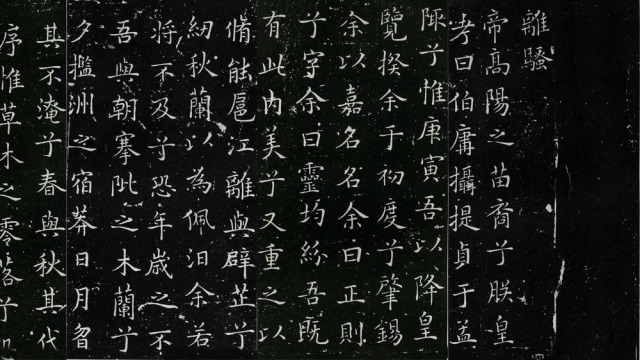 離騷
帝高陽之苗裔兮朕皇
考曰伯庸攝提貞于孟
陬兮惟庚寅吾以降皇
覽揆余于初度兮肇錫
余以嘉名名余曰正則
兮字余曰靈均紛吾既
有此內美兮又重之以
脩能扈江離與辟芷兮
紉秋蘭以為佩汩余若
將不及兮恐年歲之不
吾與朝搴阰之木蘭兮
夕擥洲之宿莽日月曶
其不淹兮春與秋其代
序惟草木之零落兮